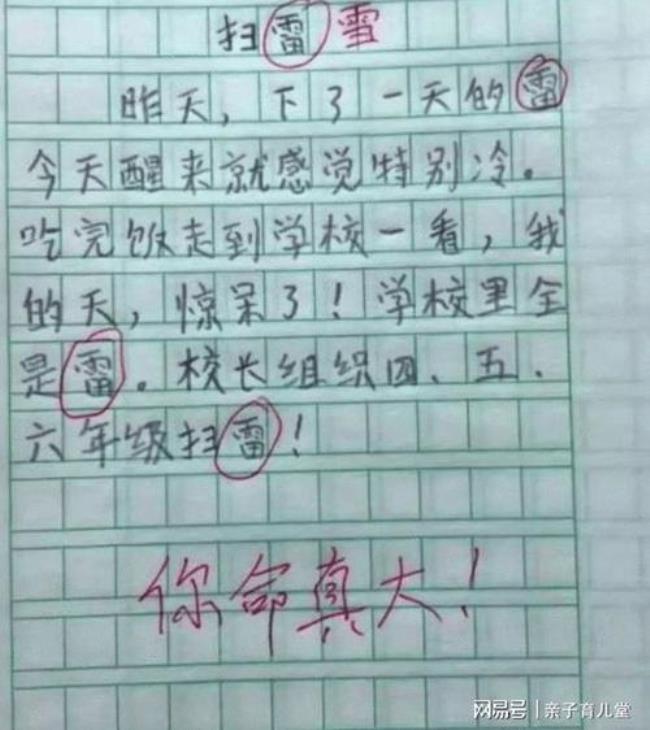 扫雷雪
昨天，下了一天的雷
今天醒来就感觉特别冷。
吃完饭走到学校一看，我
的天，惊呆了！学校里全
是雷。校长组织四、五、
六年级扫雷！
你命真大！
网易号 | 亲子育儿堂